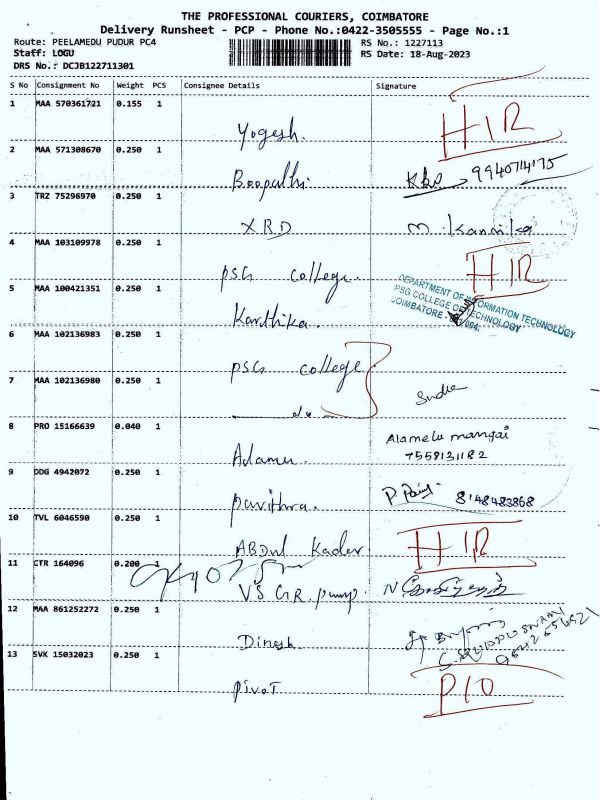 THE PROFESSIONAL COURIERS, COIMBATORE
Delivery Runsheet - PCP - Phone No.:0422-3505555 - Page No.:1
Route: PEELAMEDU PUDUR PC4 RS No.: 1227113
Staff: LOGU RS Date: 18-Aug-2023
DRS No.: DCJB122711301
S No Consignment No Weight PCS Consignee Details Signature
1 MAA 570361721 0.155 1
Yogesh. HIR
2 MAA 571308670 0.250 1
Boopathi 9940714175
3 TRZ 75296970 0.250 1
XRD M. Kannika
4 MAA 103109978 0.250 1
PSG College. HIR
5 MAA 100421351 0.250 1
Karthika.
DEPARTMENT OF INFORMATION TECHNOLOGY
PSG COLLEGE OF TECHNOLOGY
COIMBATORE - 641 004.
6 MAA 102136983 0.250 1
PSG College
7 MAA 102136980 0.250 1
do
8 PRO 15166639 0.040 1
Alamelu mangai
7558131182
9 DDG 4942072 0.250 1
Pavithra. 8148483868
10 TVL 6046590 0.250 1
ABDul Kader HIR
11 CTR 164096 0.200 1
VS GR. Pump.
12 MAA 861252272 0.250 1
Dinesh
13 SVK 15032023 0.250 1
Pivot PIO